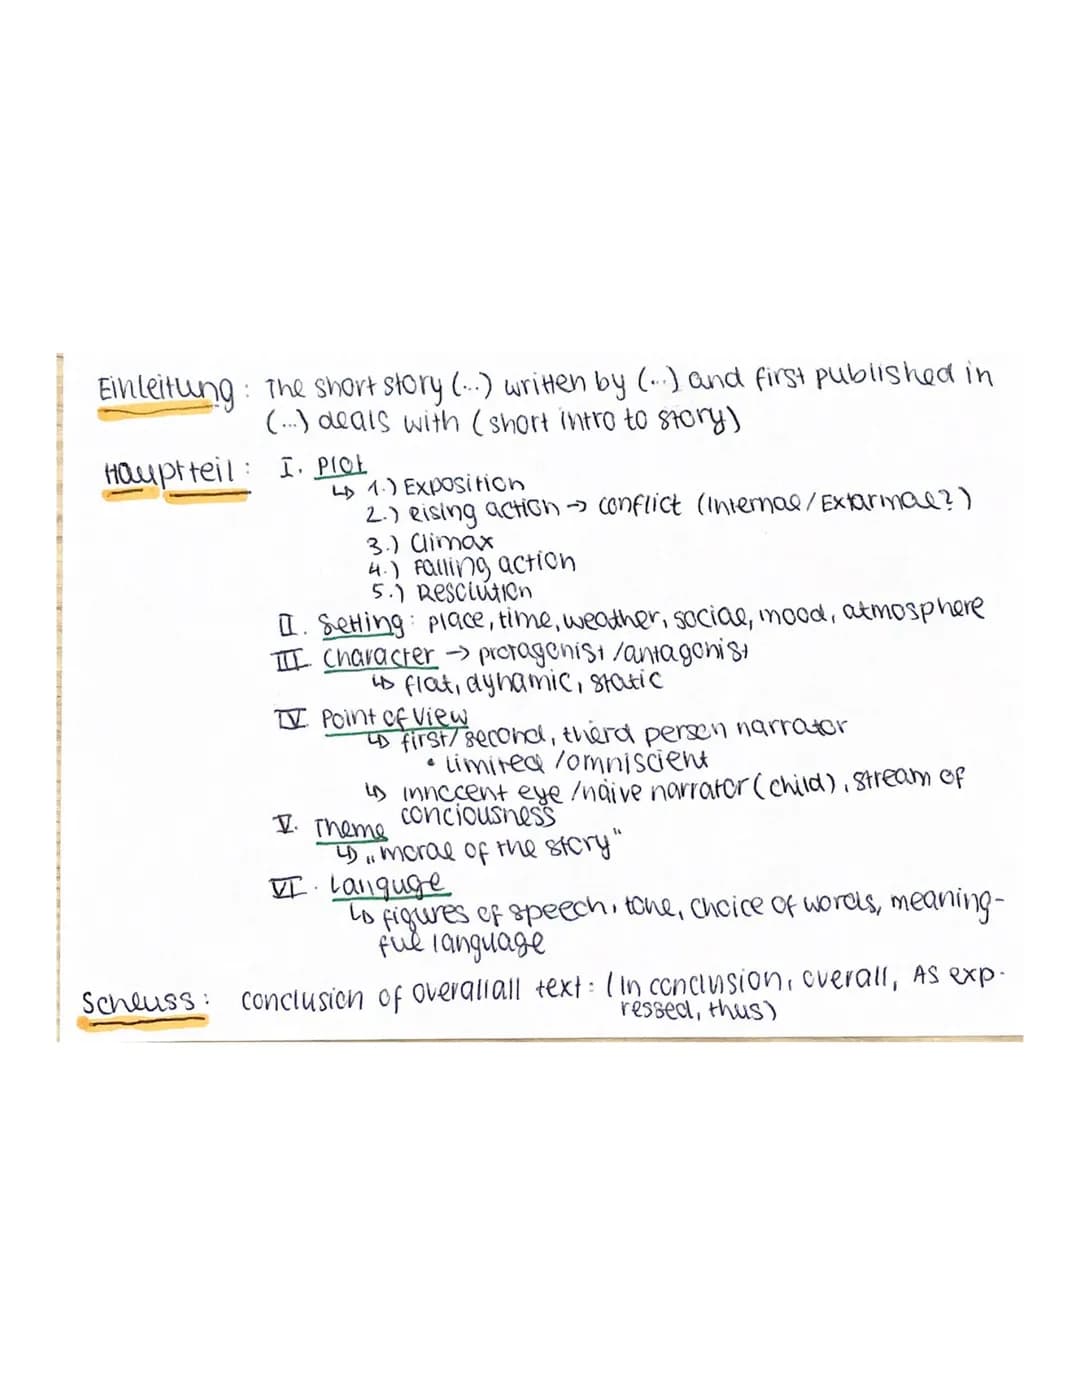 Einleitung: The short story (...) written by (...) and first published in
(...) deals with (short intro to story)
Hauptteil: I. Plot
↳ 1.) Exposition
2.) Rising action → conflict (Internal/Extarmal?)
3.) Climax
4.) Falling action
5.) Resolution
II. Setting: place, time, weather, social, mood, atmosphere
III. Character → protagonist/antagonist
↳ flat, dynamic, static
IV. Point of View
↳ first/second, third person narrator
• limited/omniscient
↳ innocent eye/naive narrator (child), stream of
conciousness
V. Theme
↳ „moral of the story“
VI. Languge
↳ figures of speech, tone, choice of words, meaning-
ful language
Schluss: conclusion of overallall text: (In conclusion, overall, As exp-
ressed, thus)